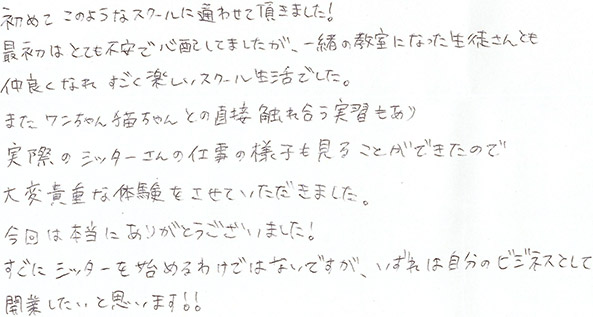 初めて このようなスクールに通わせて頂きました!
最初はとても不安で心配してましたが、一緒の教室になった生徒さんとも
仲良くなれ すごく楽しいスクール生活でした。
また ワンちゃん猫ちゃんとの直接触れ合う実習もあり
実際のシッターさんの仕事の様子も見ることができたので
大変貴重な体験をさせていただきました。
今回は本当にありがとうございました!
すぐに シッターを始めるわけではないですが、いずれは自分のビジネスとして
開業したいと思います!!